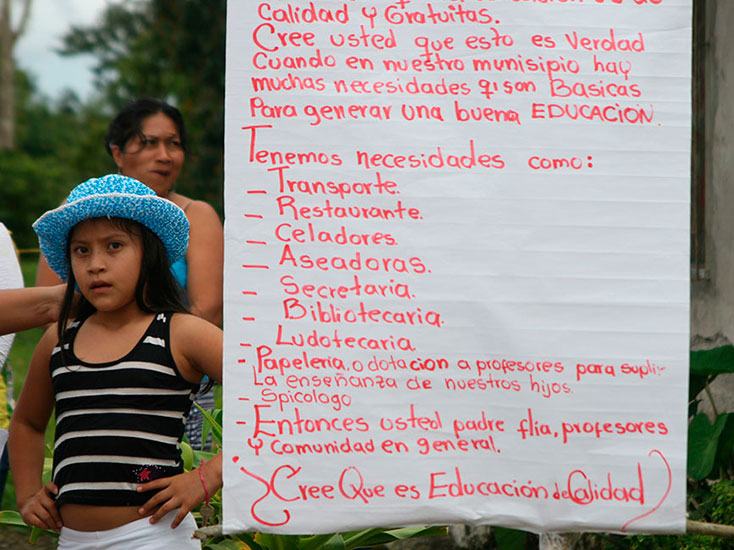 Calidad y Gratuitas.
Cree usted que esto es Verdad
Cuando en nuestro munisipio hay
muchas necesidades qi son Basicas
Para generar una buena EDUCACION.
Tenemos necesidades como:
_ Transporte.
_ Restaurante.
_ Celadores.
_ Aseadoras.
_ Secretaria.
_ Bibliotecaria.
_ Ludotecaria
- Papeleria, o dotacion a profesores para suplir
La enseñanza de nuestros hijos.
- Spicologo
- Entonces usted padre flia, profesores
y Comunidad en general.
¿Cree Que es Educación de Calidad)